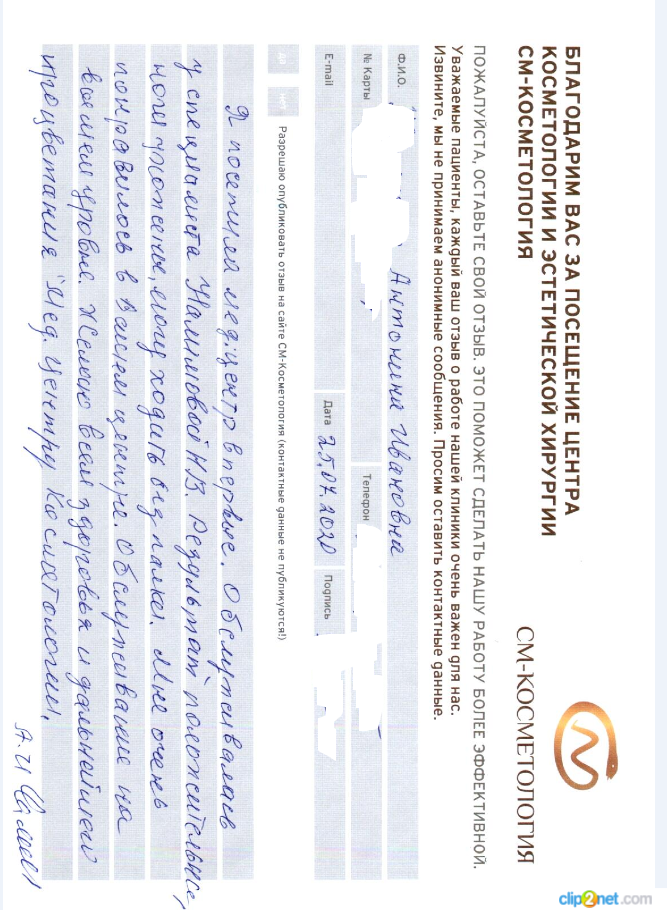 БЛАГОДАРИМ ВАС ЗА ПОСЕЩЕНИЕ ЦЕНТРА
КОСМЕТОЛОГИИ И ЭСТЕТИЧЕСКОЙ ХИРУРГИИ
СМ-КОСМЕТОЛОГИЯ
СМ-КОСМЕТОЛОГИЯ
ПОЖАЛУЙСТА, ОСТАВЬТЕ СВОЙ ОТЗЫВ. ЭТО ПОМОЖЕТ СДЕЛАТЬ НАШУ РАБОТУ БОЛЕЕ ЭФФЕКТИВНОЙ.
Уважаемые пациенты, каждый ваш отзыв о работе нашей клиники очень важен для нас.
Извините, мы не принимаем анонимные сообщения. Просим оставить контактные данные.
Ф.И.О. Антонина Ивановна
№ Карты Телефон
E-mail Дата 25.07.2020 Подпись
да нет Разрешаю опубликовать отзыв на сайте СМ-Косметология (контактные данные не публикуются!)
Я посетила мед.центр впервые. Обслуживалась
у специалиста Н.В. Результат положительные,
ноги ухожены, могу ходить без палки. Мне очень
понравилось в Вашем центре. Обслуживание на
высшем уровне. Желаю всем здоровья и дальнейшего
процветания "Мед. центру Косметологии".
А.И
clip2net.com